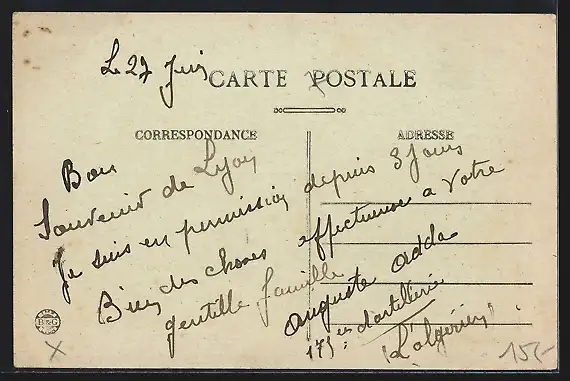 Le 27 Juin
CARTE POSTALE
CORRESPONDANCE
ADRESSE
Bon
Souvenir de Lyon
Je suis en permission depuis 3 jours
Bien des choses affectueuses a votre
gentille famille
auguste adda
175 es d'artillerie
(L'algérien)
B&G
X
15,-